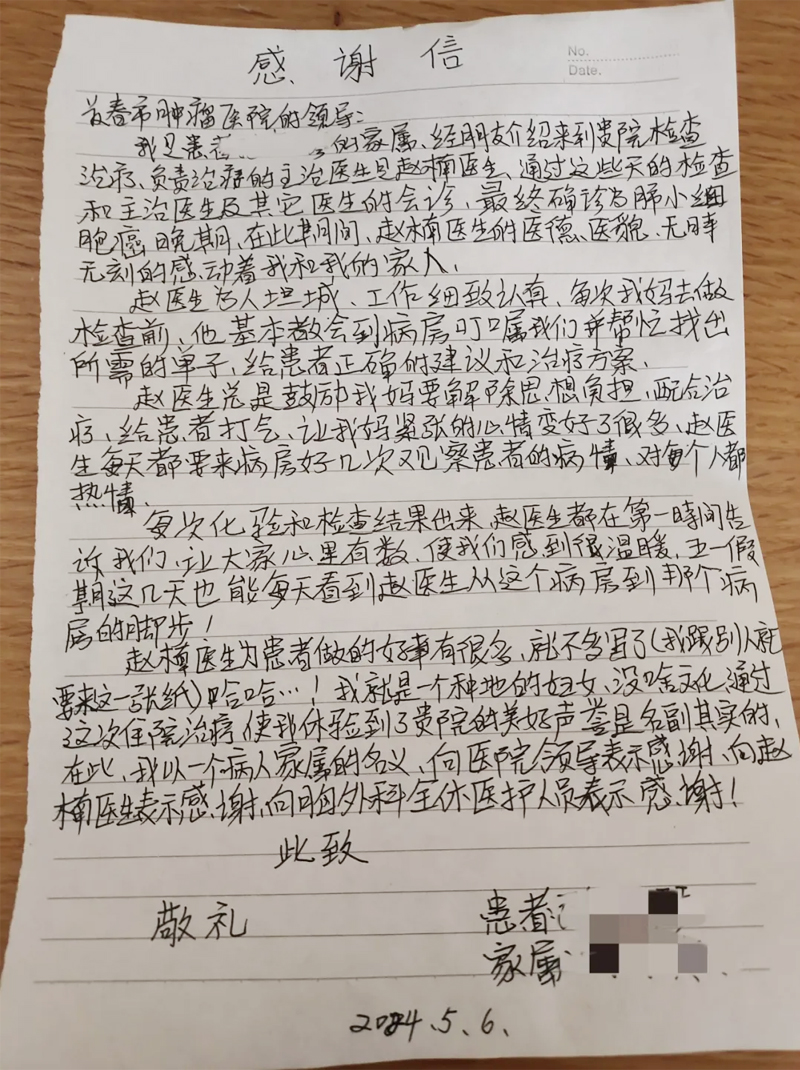 感谢信
No.
Date.
长春市肿瘤医院的领导:
我是患者 的家属、经朋友介绍来到贵院检查
治疗、负责治病的主治医生是赵楠医生、通过这些天的检查
和主治医生及其它医生的会诊、最终确诊为肺小细
胞癌晚期、在此期间、赵楠医生的医德、医貌、无时
无刻的感动着我和我的家人、
赵医生为人坦城、工作细致认真、每次我妈去做
检查前、他基本都会到病房叮嘱我们并帮忙找出
所需的单子、给患者正确的建议和治疗方案、
赵医生总是鼓励我妈要解除思想负担、配合治
疗、给患者打气、让我妈紧张的心情变好了很多、赵医
生每天都要来病房好几次观察患者的病情、对每个人都
热情、
每次化验和检查结果出来、赵医生都在第一時间告
诉我们、让大家心里有数、使我们感到很温暖、五一假
期这几天也能每天看到赵医生从这个病房到那个病
房的脚步!
赵楠医生为患者做的好事有很多、就不多写了(我跟别人就
要来这一张纸)哈哈…!我就是一个种地的妇女、没啥文化、通过
这次住院治疗、使我体验到了贵院的美好声誉是名副其实的、
在此、我以一个病人家属的名义、向医院领导表示感谢、向赵
楠医生表示感谢、向胸外科全体医护人员表示感谢!
此致
敬礼
患者
家属
2024.5.6.